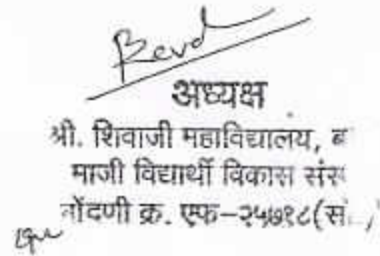 Revd
अध्यक्ष
श्री. शिवाजी महाविद्यालय, ब
माजी विद्यार्थी विकास संस
नोंदणी क्र. एफ-२५७१८(सं..,